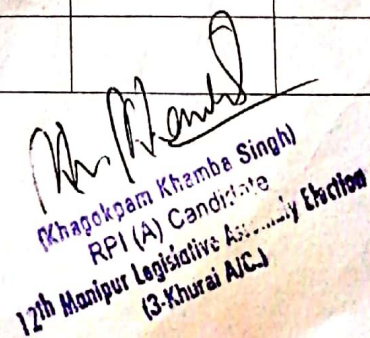 (Khagokpam Khamba Singh)
RPI (A) Candidate
12th Manipur Legislative Assembly Election
(3-Khurai A/C.)